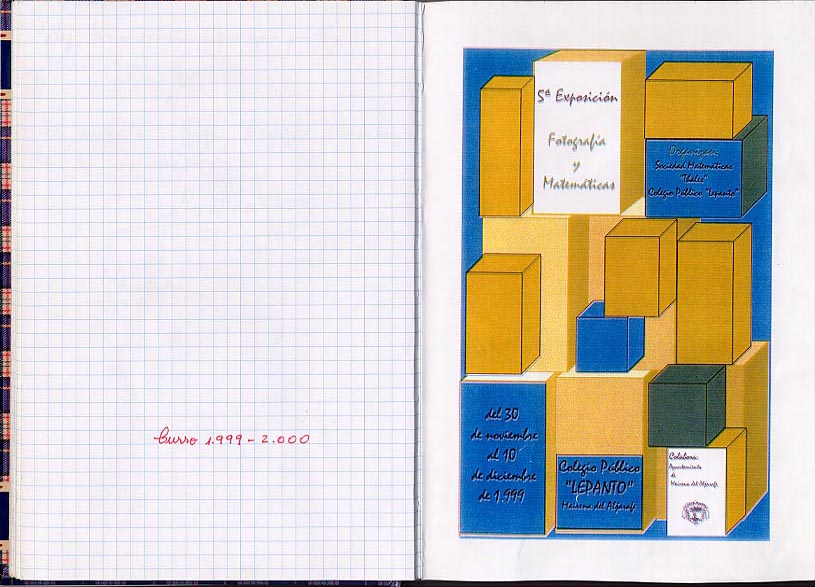 Curso 1.999 - 2.000
5ª Exposición
Fotografía
y
Matemáticas
Organizan:
Sociedad Matemáticas
"Thales"
Colegio Público "Lepanto"
del 30
de noviembre
al 10
de diciembre
de 1.999
Colegio Público
"LEPANTO"
Mairena del Aljarafe
Colabora:
Ayuntamiento
de
Mairena del Aljarafe